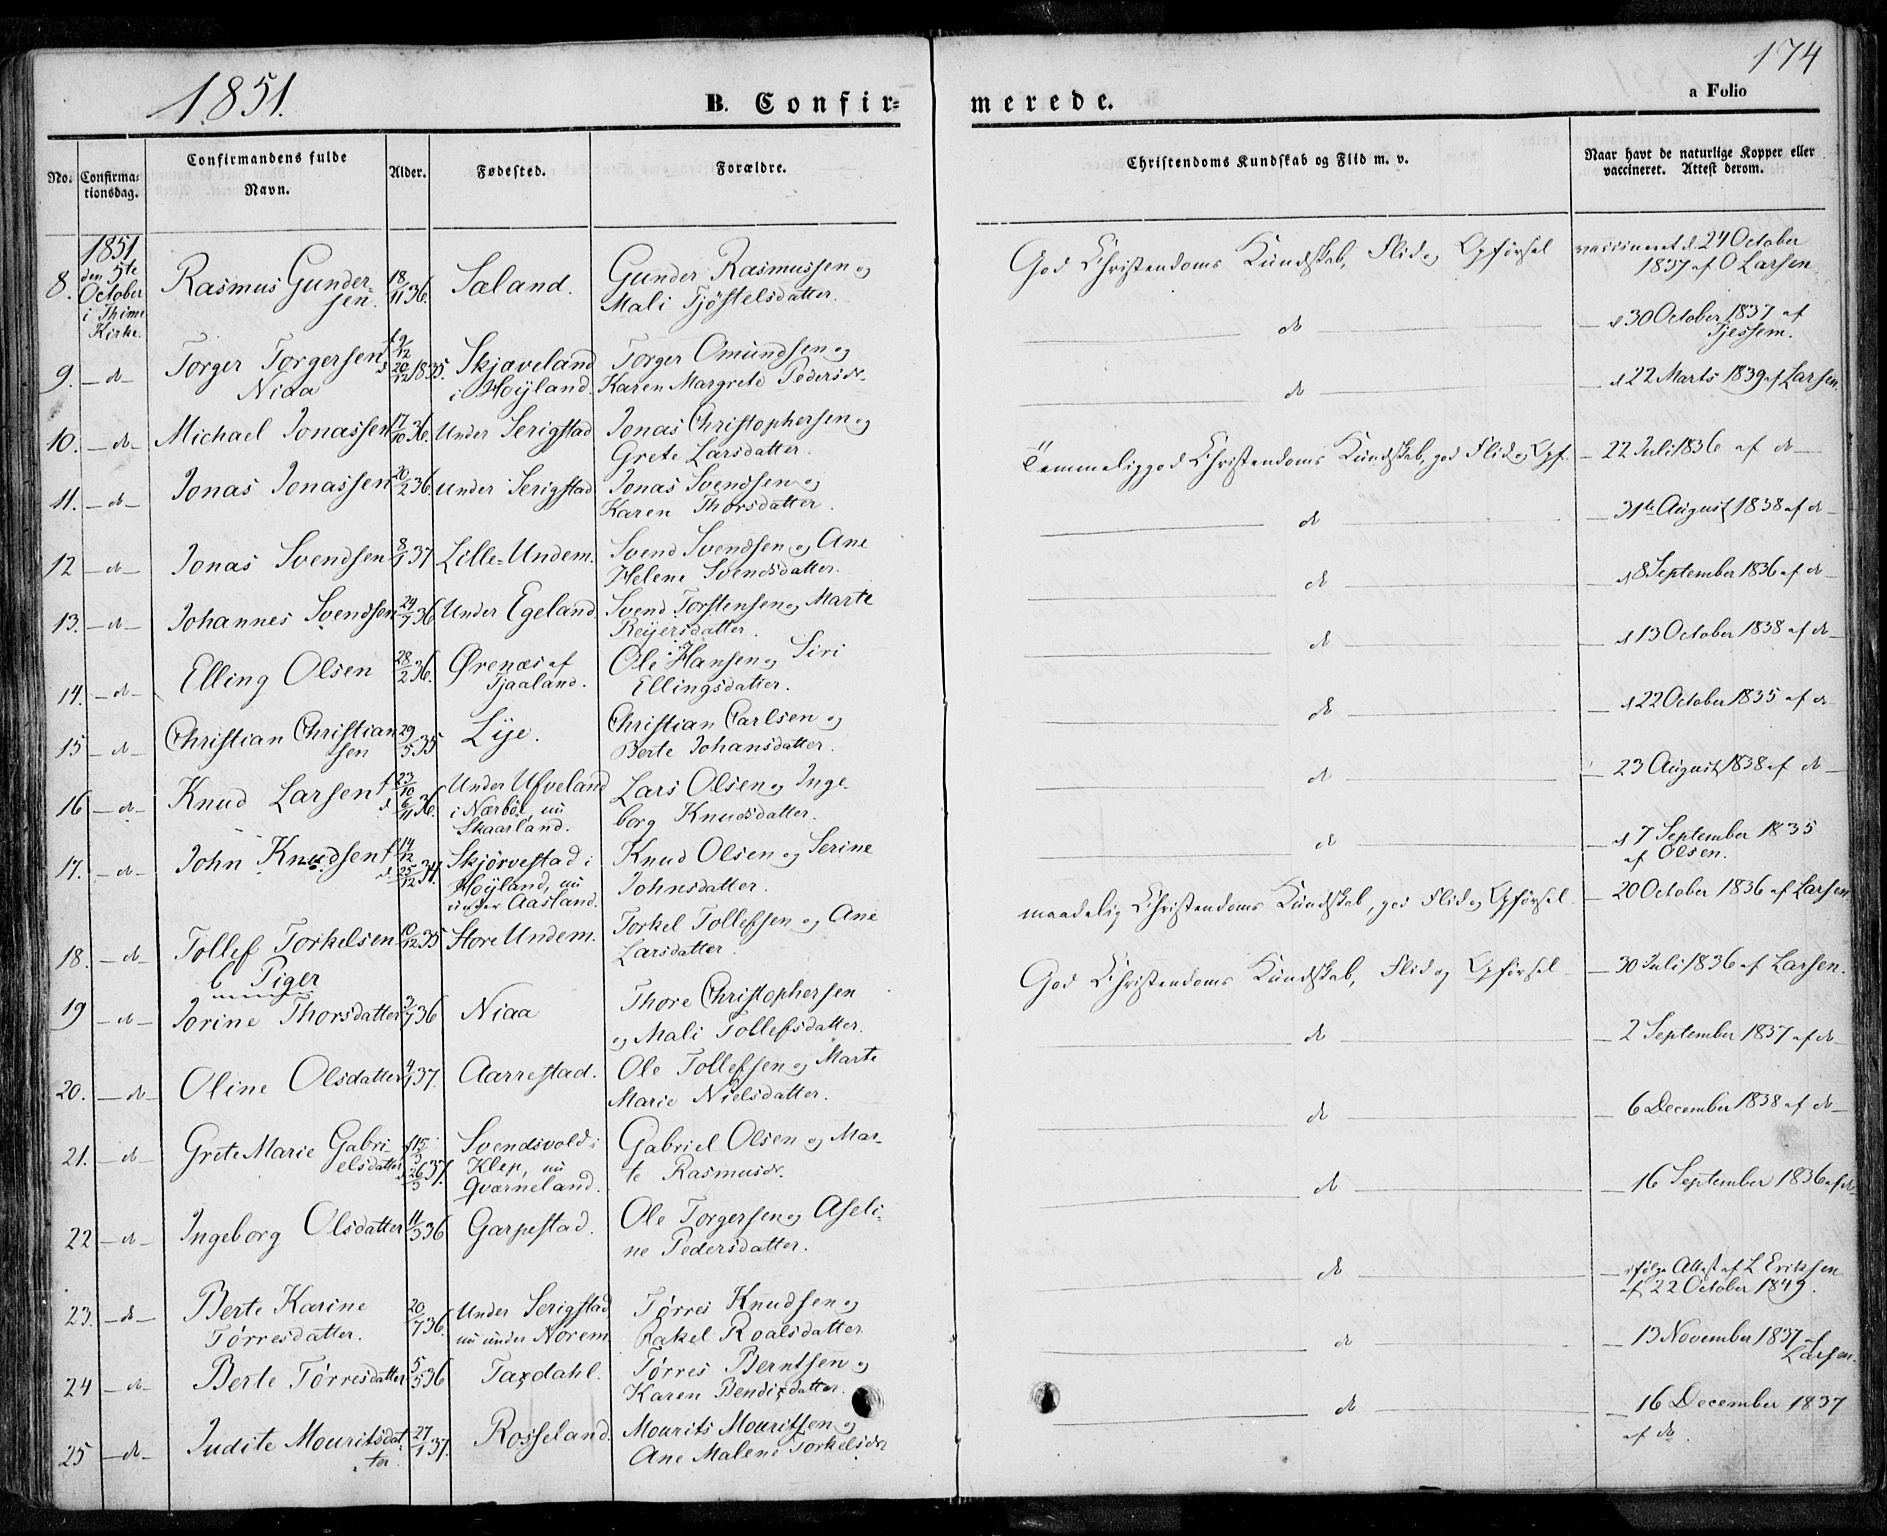 1851.
174
B. Confir=
merede.
a Folio
No.
Confirma=
tionsdag.
Confirmandens fulde
Navn.
Alder.
Fødested.
Forældre.
Christendoms Kundskab og Flid m. v.
Naar havt de naturlige Kopper eller
vaccineret. Attest derom.
1851
den 5te
October
i Thime
Kirke.
8. Rasmus Gunder-
sen. 18/11 36. Sæland. Gunder Rasmussen og
Mali Tjøstelsdatter.
God Christendoms Kundskab, Flid og Opførsel
vaccineret d. 24 October
1837 af O Larsen
9. - do - Torger Torgersen
Niaa f 9/12 d 20/12 1835. Skjæveland
i Høyland. Torger Omundsen og
Karen Margrete Pedersdr.
do
d 30 October 1837 af
Tjessem.
10. - do - Michael Jonassen 17/10 36. Under Serigstad Jonas Christophersen og
Grete Larsdatter.
do
d 22 Marts 1839 af Larsen.
11. - do - Jonas Jonassen 20/2 36. Under Serigstad Jonas Svendsen og
Karen Thorsdatter.
Temmelig god Christendoms Kundskab, god Flid og Opf.
22 Juli 1836 af do
12 - do - Jonas Svendsen 8/1 37 Lille-Undem. Svend Svendsen og Ane
Helene Svendsdatter.
do
31te August 1838 af do
13. - do - Johannes Svendsen 24/7 36 Under Egeland Svend Torstensen og Marte
Reijersdatter.
do
d 8 September 1836 af do
14. - do - Elling Olsen 28/2 36. Ørenæs af
Tjaaland. Ole Hansen og Siri
Ellingsdatter.
do
d 13 October 1838 af do
15 - do - Christian Christian
sen 29/5 35 Lye. Christian Carlsen og
Berte Johansdatter.
do
d 22 October 1835 af do
16 - do - Knud Larsen f 23/10 d 6/11 36. Under Ufveland
i Nærbø, nu
Skaarland. Lars Olsen og Inge
borg Knudsdatter.
do
23 August 1838 af do
17. - do - John Knudsen f 14/12 d 25/12 34. Skjørvestad i
Høyland, nu
under Aasland. Knud Olsen og Serine
Johnsdatter.
do
d 7 September 1835
af Olsen.
18. - do - Tollef Torkelsen 10/12 35 Store Undem. Torkel Tollefsen og Ane
Larsdatter.
maadelig Christendoms Kundskab, god Flid og Opførsel
20 October 1836 af Larsen
6 Piger
19 - do - Jorine Thorsdatter 3/7 36 Niaa Thore Christophersen
og Mali Tollefsdatter.
God Christendoms Kundskab, Flid og Opførsel
30 Juli 1836 af Larsen.
20. - do - Oline Olsdatter 4/1 37. Aarrestad. Ole Tollefsen og Marte
Marie Nielsdatter.
do
2 September 1837 af do
21. - do - Grete Marie Gabri-
elsdatter f 15/3 d 26/3 37. Svendsvold i
Klep, nu
Qværneland. Gabriel Olsen og Mar-
te Rasmusdr.
do
6 December 1838 af do
22 - do - Ingeborg Olsdatter 11/3 36 Garpestad. Ole Torgersen og Aseli-
ne Pedersdatter.
do
16 September 1836 af do
23. - do - Berte Karine
Tørresdatter. 20/7 36. Under Serigstad
nu under Norem Tørres Knudsen og
Rakel Roalsdatter
do
ifølge Attest af L Eriksen
af 22 October 1849.
24 - do - Berte Tørresdatter 5/5 36 Taxdahl. Tørres Berntsen og
Karen Bendixdatter.
do
13 November 1837 af
Larsen.
25 - do - Judite Mouritsdat
ter 27/1 37. Rosseland. Mourits Mouritsen og
Ane Malene Torkelsdr
do
16 December 1837
af do.